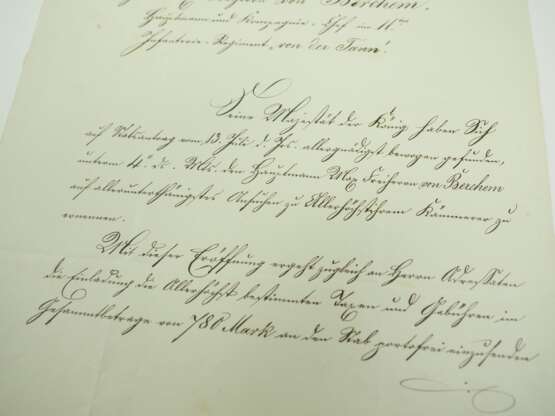 Freiherrn von Berchem.
Hauptmann und Kompagnie-Chef im 11ten
Infanterie-Regiment „von der Tann“.
Seine Majestät der König haben Sich
auf Stabsantrag vom 13. Juli d. Jrs. allergnädigst bewogen gefunden,
unterm 4. ds. Mts. den Hauptmann Max Freiherrn von Berchem
auf allerunterthänigstes Ansuchen zu Allerhöchstihrem Kämmerer zu
ernennen.
Mit dieser Eröffnung ergeht zugleich an Herrn Adressaten
die Einladung die Allerhöchst bestimmten Taxen und Gebühren im
Gesammtbetrage von 780 Mark an den Stab portofrei einzusenden